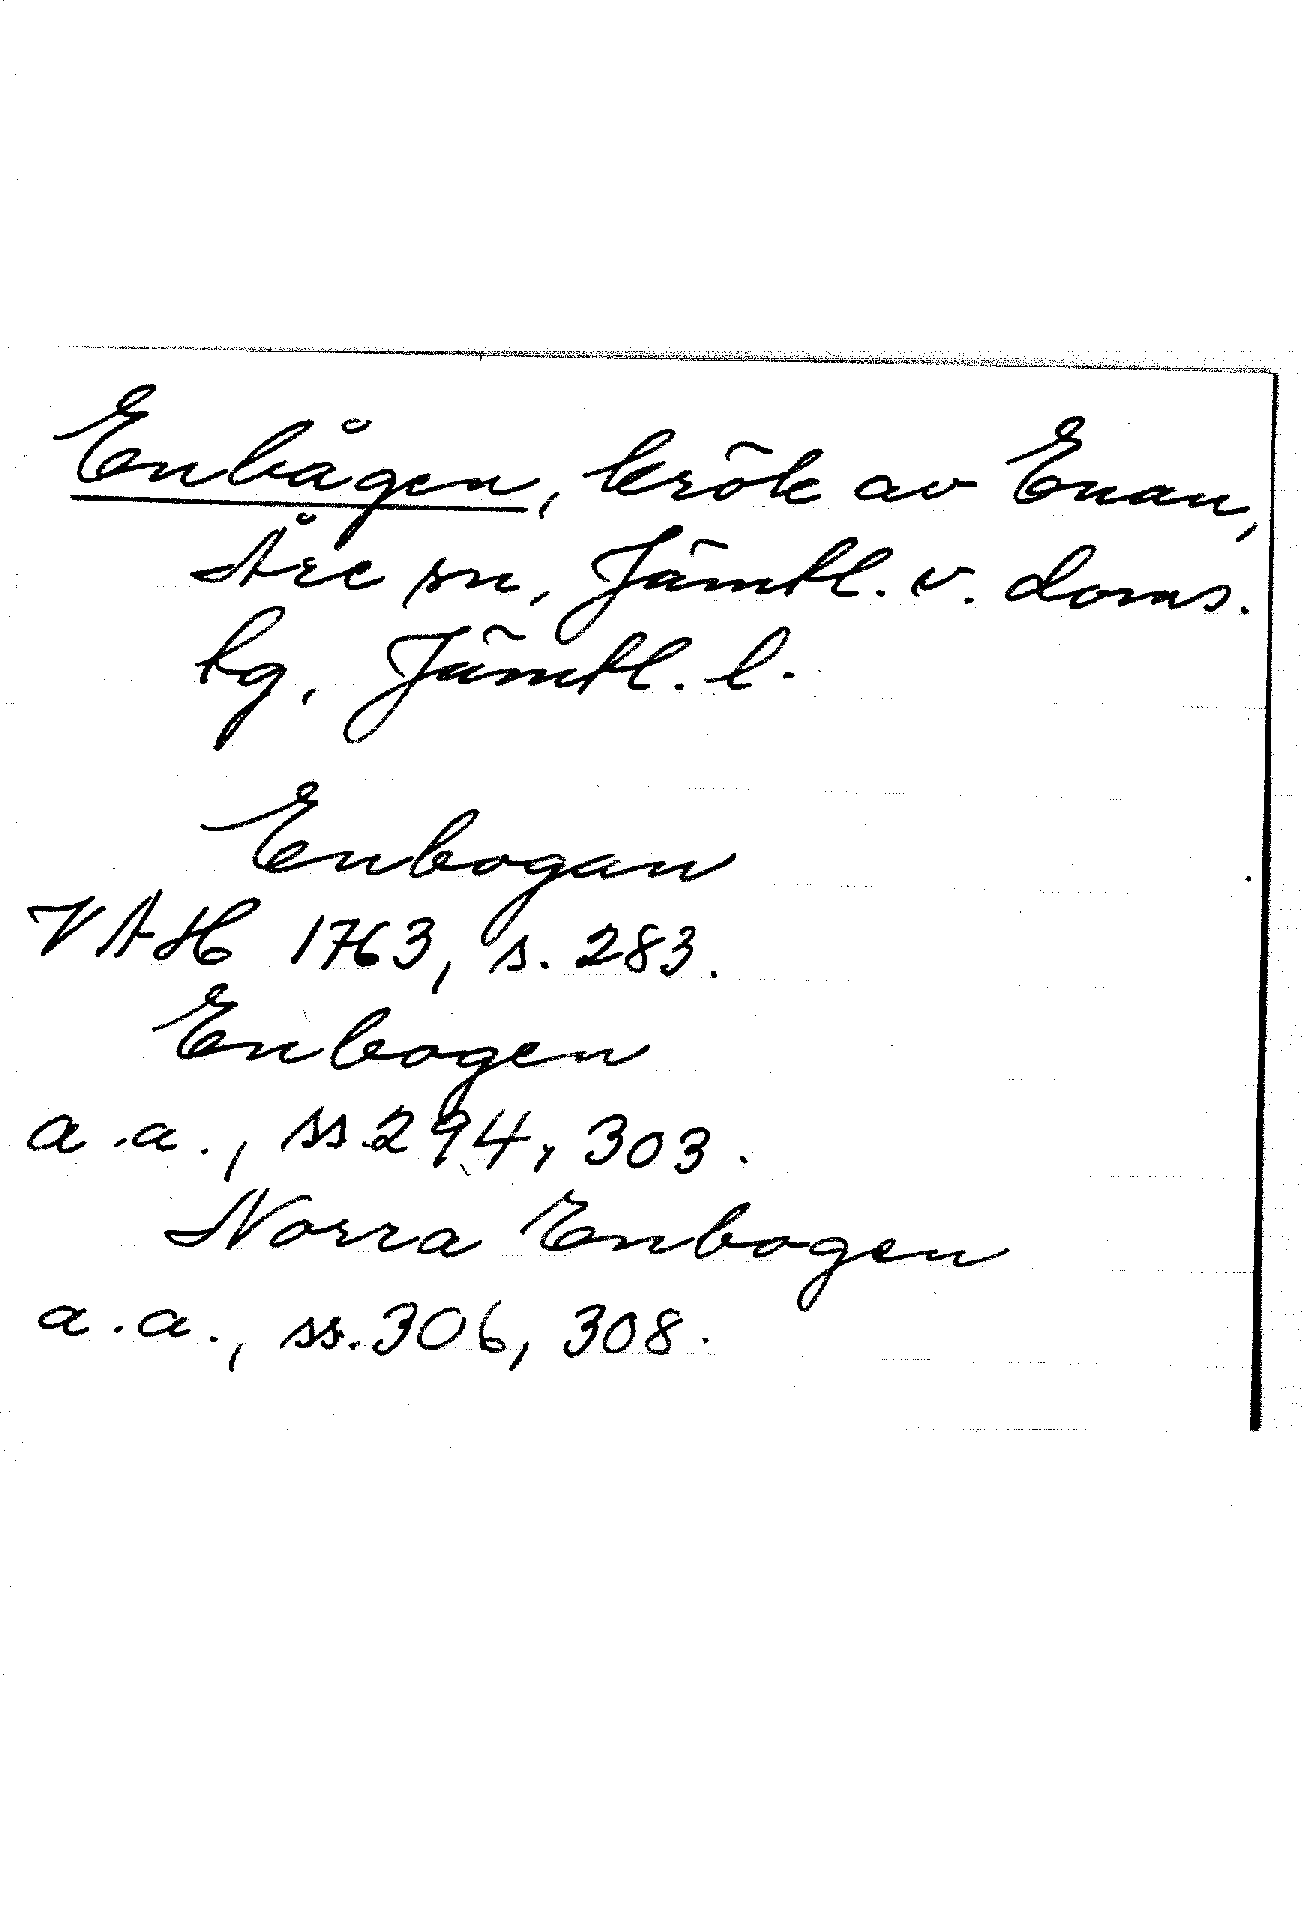 Enbågen, krök av Enan,
Åre sn, Jämtl. v. doms.
hg, Jämtl. l.
Enbogan
VAH 1763, s. 283.
Enbogen
a.a., ss. 294, 303.
Norra Enbogen
a.a., ss. 306, 308.